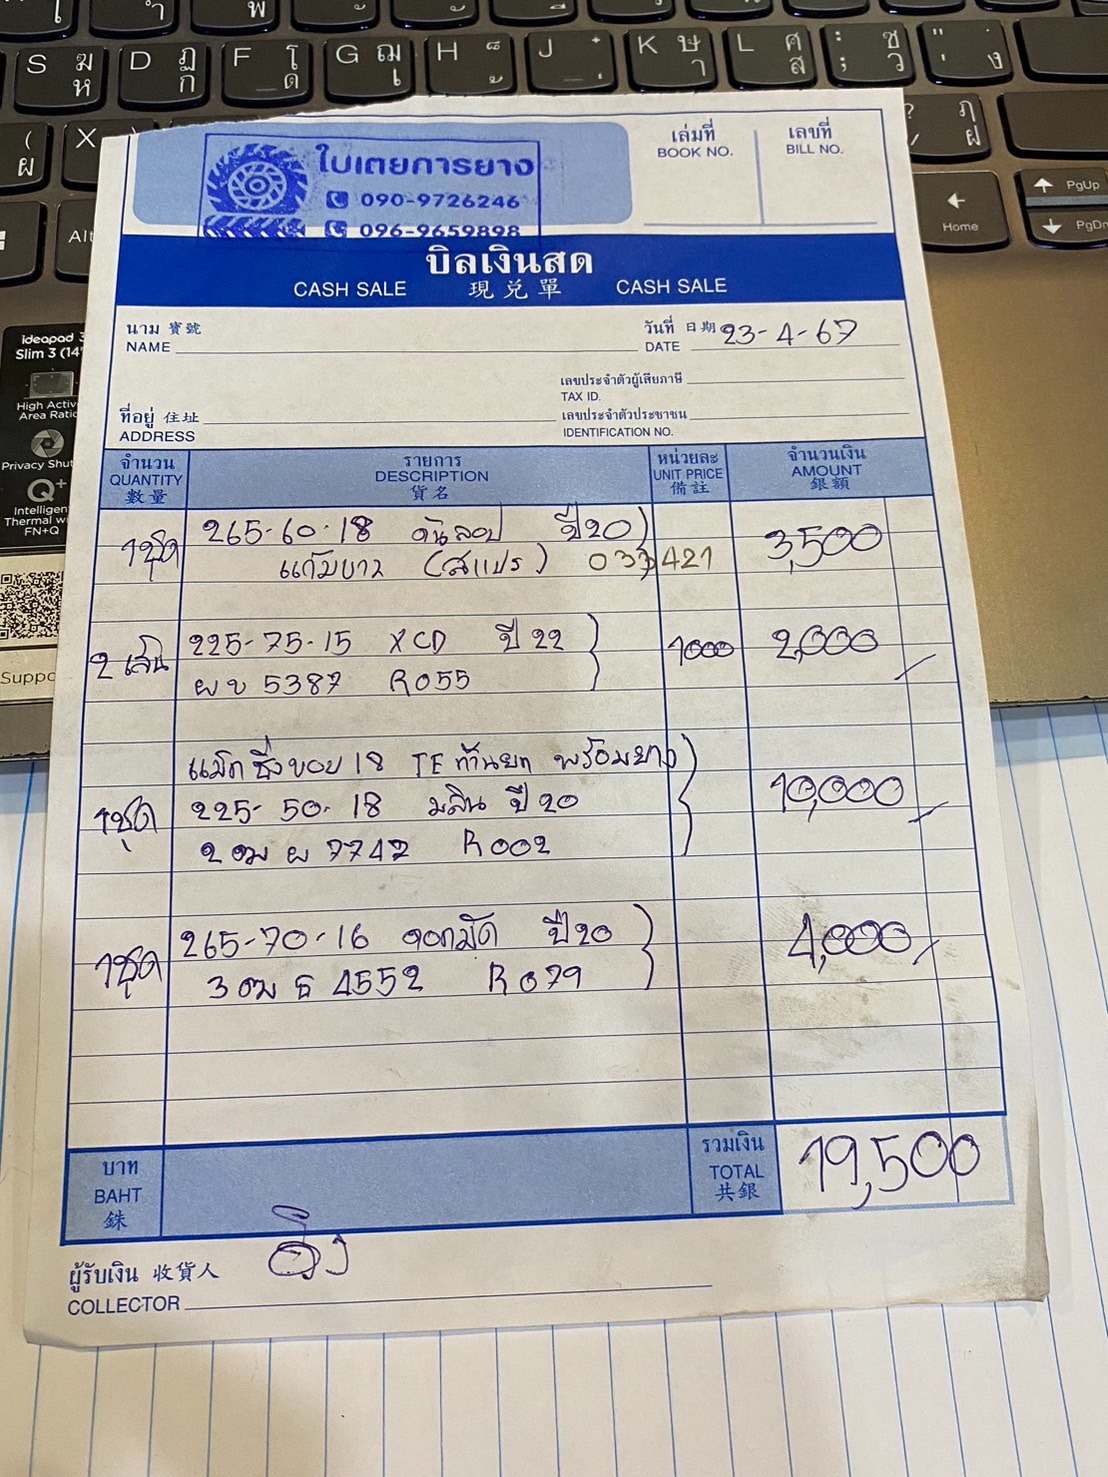 S ฆ ห
D ฏ ก
F โ ด
G ฌ เ
H ็ ้
J ๋ ่
K ษ า
L ศ ส
: ; ซ ว
" ' . ง
( ผ
X
? ฦ ฝ
Alt
Home
PgUp
PgDn
ideapad 3
Slim 3 (14"
High Active
Area Ratio
Privacy Shut
Q+
Intelligen
Thermal w
FN+Q
Suppo
ใบเตยการยาง
090-9726246
096-9659898
เล่มที่
BOOK NO.
เลขที่
BILL NO.
บิลเงินสด
CASH SALE 現兑單 CASH SALE
นาม 寳號
NAME
วันที่ 日期 23-4-67
DATE
เลขประจำตัวผู้เสียภาษี
TAX ID.
ที่อยู่ 住址
ADDRESS
เลขประจำตัวประชาชน
IDENTIFICATION NO.
จำนวน รายการ หน่วยละ จำนวนเงิน
QUANTITY DESCRIPTION UNIT PRICE AMOUNT
數量 貨名 備註 銀額
1ชุด 265-60-18 ดันลอป ปี20 3,500
แก้มขาว (สแปร) 033421
2 เส้น 225-75-15 XCD ปี 22 1000 2,000
ผข 5387 R055
แม็กซิ่งขอบ 18 TE ก้านยก พร้อมยาง
1ชุด 225-50-18 มสิน ปี 20 10,000
2 ฒผ 7747 R002
1ชุด 265-70-16 ดอกมัด ปี20 4,000
3 ฒธ 4552 R079
บาท
BAHT
銖
รวมเงิน
TOTAL
共銀
19,500
ผู้รับเงิน 收貨人
COLLECTOR